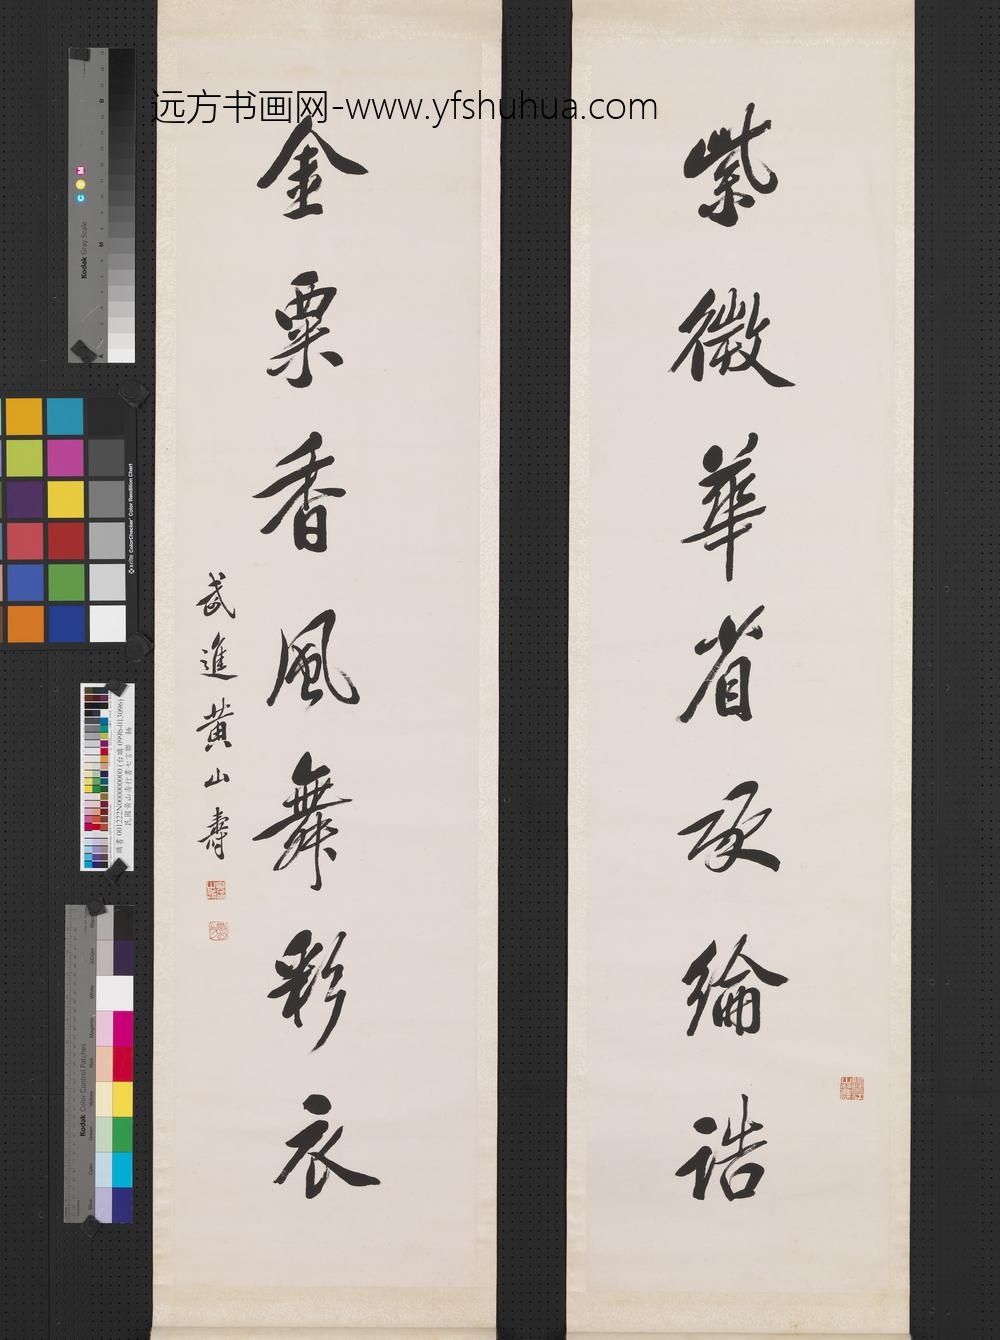 远方书画网-www.yfshuhua.com
紫微華省承綸誥
金粟香風舞彩衣
武進黃山壽
Kodak Gray Scale
C Y M
x-rite ColorChecker Color Rendition Chart
購書 001222N000000000 (台購 0996-013096)
民國黃山壽行書七言聯 軸
Kodak Color Control Patches
Blue
Cyan
Green
Yellow
Red
Magenta
White